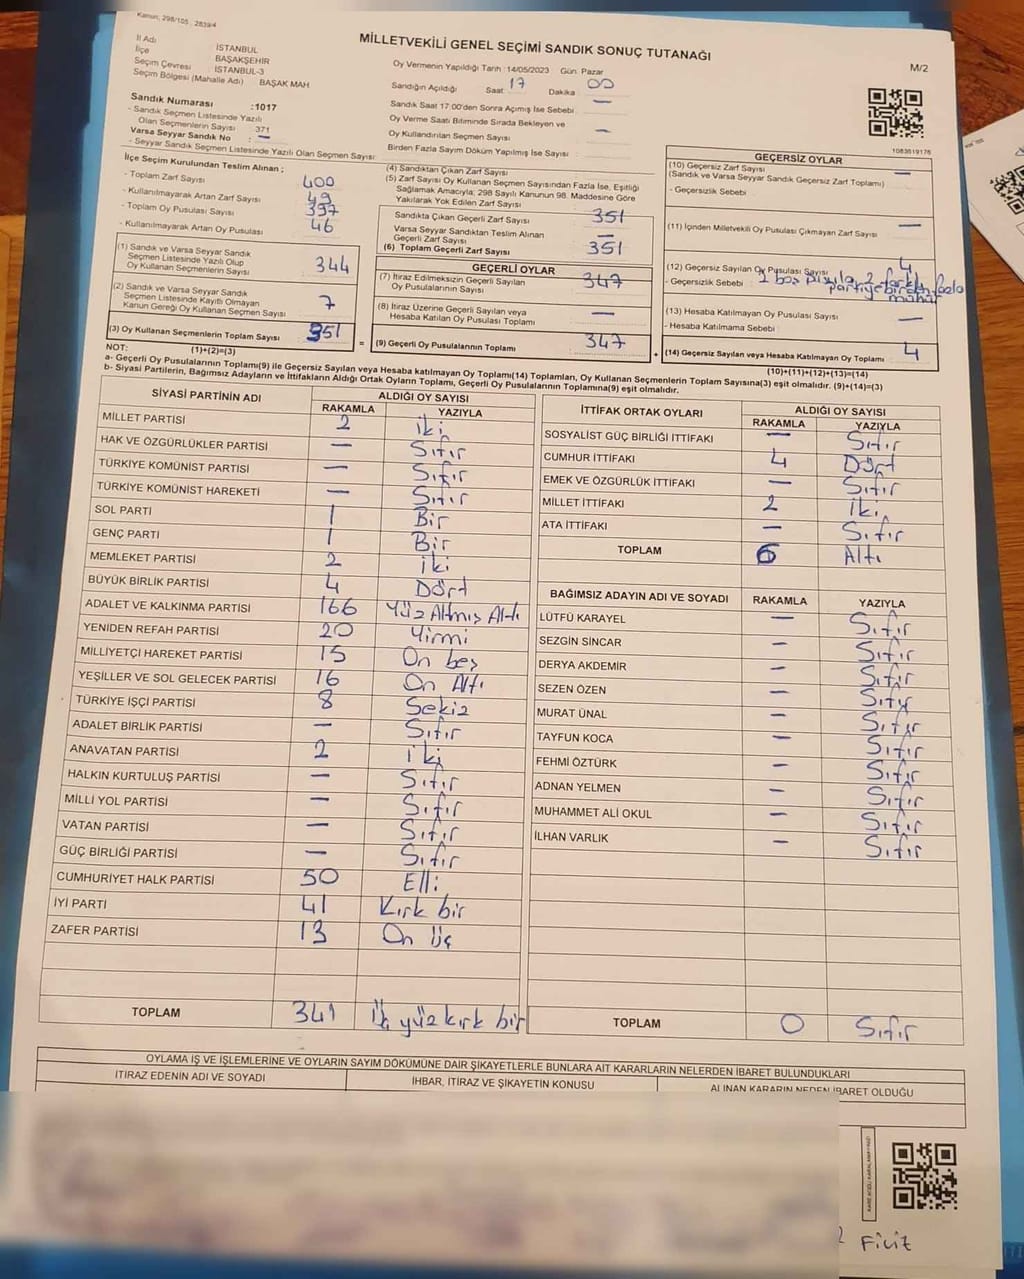 Kanun; 298/105 2839/4
MİLLETVEKİLİ GENEL SEÇİMİ SANDIK SONUÇ TUTANAĞI
M/2
İl Adı İSTANBUL
İlçe BAŞAKŞEHİR
Seçim Çevresi İSTANBUL-3
Seçim Bölgesi (Mahalle Adı) BAŞAK MAH
Sandık Numarası :1017
- Sandık Seçmen Listesinde Yazılı
Olan Seçmenlerin Sayısı 371
Varsa Seyyar Sandık No : —
- Seyyar Sandık Seçmen Listesinde Yazılı Olan Seçmen Sayısı:
Oy Vermenin Yapıldığı Tarih :14/05/2023 Gün: Pazar
Sandığın Açıldığı Saat: 17 Dakika : 00
Sandık Saat 17:00'den Sonra Açımış İse Sebebi : —
Oy Verme Saati Bitiminde Sırada Bekleyen ve
Oy Kullandırılan Seçmen Sayısı : —
Birden Fazla Sayım Döküm Yapılmış İse Sayısı :
1083619176
İlçe Seçim Kurulundan Teslim Alınan ;
- Toplam Zarf Sayısı : 400
- Kullanılmayarak Artan Zarf Sayısı : 49
- Toplam Oy Pusulası Sayısı : 397
- Kullanılmayarak Artan Oy Pusulası : 46
(1) Sandık ve Varsa Seyyar Sandık
Seçmen Listesinde Yazılı Olup
Oy Kullanan Seçmenlerin Sayısı : 344
(2) Sandık ve Varsa Seyyar Sandık
Seçmen Listesinde Kayıtlı Olmayan
Kanun Gereği Oy Kullanan Seçmen Sayısı : 7
(3) Oy Kullanan Seçmenlerin Toplam Sayısı : 351
(1)+(2)=(3)
(4) Sandıktan Çıkan Zarf Sayısı :
(5) Zarf Sayısı Oy Kullanan Seçmen Sayısından Fazla İse, Eşitliği
Sağlamak Amacıyla; 298 Sayılı Kanunun 98. Maddesine Göre
Yakılarak Yok Edilen Zarf Sayısı :
Sandıkta Çıkan Geçerli Zarf Sayısı : 351
Varsa Seyyar Sandıktan Teslim Alınan
Geçerli Zarf Sayısı : —
(6) Toplam Geçerli Zarf Sayısı : 351
GEÇERLİ OYLAR
(7) İtiraz Edilmeksizin Geçerli Sayılan
Oy Pusulalarının Sayısı : 347
(8) İtiraz Üzerine Geçerli Sayılan veya
Hesaba Katılan Oy Pusulası Toplamı : —
= (9) Geçerli Oy Pusulalarının Toplamı : 347
GEÇERSİZ OYLAR
(10) Geçersiz Zarf Sayısı : —
(Sandık ve Varsa Seyyar Sandık Geçersiz Zarf Toplamı)
- Geçersizlik Sebebi :
(11) İçinden Milletvekili Oy Pusulası Çıkmayan Zarf Sayısı : —
(12) Geçersiz Sayılan Oy Pusulası Sayısı : 4
- Geçersizlik Sebebi :
(13) Hesaba Katılmayan Oy Pusulası Sayısı : —
- Hesaba Katılmama Sebebi :
+ (14) Geçersiz Sayılan veya Hesaba Katılmayan Oy Toplamı : 4
(10)+(11)+(12)+(13)=(14)
NOT:
a- Geçerli Oy Pusulalarının Toplamı(9) ile Geçersiz Sayılan veya Hesaba katılmayan Oy Toplamı(14) Toplamları, Oy Kullanan Seçmenlerin Toplam Sayısına(3) eşit olmalıdır. (9)+(14)=(3)
b- Siyasi Partilerin, Bağımsız Adayların ve İttifakların Aldığı Ortak Oyların Toplamı, Geçerli Oy Pusulalarının Toplamına(9) eşit olmalıdır.
SİYASİ PARTİNİN ADI ALDIĞI OY SAYISI
RAKAMLA YAZIYLA
MİLLET PARTİSİ 2 iki
HAK VE ÖZGÜRLÜKLER PARTİSİ — Sıfır
TÜRKİYE KOMÜNİST PARTİSİ — Sıfır
TÜRKİYE KOMÜNİST HAREKETİ — Sıfır
SOL PARTİ 1 Bir
GENÇ PARTİ 1 Bir
MEMLEKET PARTİSİ 2 iki
BÜYÜK BİRLİK PARTİSİ 4 Dört
ADALET VE KALKINMA PARTİSİ 166 Yüz Altmış Altı
YENİDEN REFAH PARTİSİ 20 Yirmi
MİLLİYETÇİ HAREKET PARTİSİ 15 On beş
YEŞİLLER VE SOL GELECEK PARTİSİ 16 On Altı
TÜRKİYE İŞÇİ PARTİSİ 8 Sekiz
ADALET BİRLİK PARTİSİ — Sıfır
ANAVATAN PARTİSİ 2 iki
HALKIN KURTULUŞ PARTİSİ — Sıfır
MİLLİ YOL PARTİSİ — Sıfır
VATAN PARTİSİ — Sıfır
GÜÇ BİRLİĞİ PARTİSİ — Sıfır
CUMHURİYET HALK PARTİSİ 50 Elli
İYİ PARTİ 41 Kırk bir
ZAFER PARTİSİ 13 On Üç
TOPLAM 341 Üç yüz kırk bir
İTTİFAK ORTAK OYLARI ALDIĞI OY SAYISI
RAKAMLA YAZIYLA
SOSYALİST GÜÇ BİRLİĞİ İTTİFAKI — Sıfır
CUMHUR İTTİFAKI 4 Dört
EMEK VE ÖZGÜRLÜK İTTİFAKI — Sıfır
MİLLET İTTİFAKI 2 iki
ATA İTTİFAKI — Sıfır
TOPLAM 6 Altı
BAĞIMSIZ ADAYIN ADI VE SOYADI RAKAMLA YAZIYLA
LÜTFÜ KARAYEL — Sıfır
SEZGİN SİNCAR — Sıfır
DERYA AKDEMİR — Sıfır
SEZEN ÖZEN — Sıfır
MURAT ÜNAL — Sıfır
TAYFUN KOCA — Sıfır
FEHMİ ÖZTÜRK — Sıfır
ADNAN YELMEN — Sıfır
MUHAMMET ALİ OKUL — Sıfır
İLHAN VARLIK — Sıfır
TOPLAM 0 Sıfır
OYLAMA İŞ VE İŞLEMLERİNE VE OYLARIN SAYIM DÖKÜMÜNE DAİR ŞİKAYETLERLE BUNLARA AİT KARARLARIN NELERDEN İBARET BULUNDUKLARI
İTİRAZ EDENİN ADI VE SOYADI İHBAR, İTİRAZ VE ŞİKAYETİN KONUSU ALINAN KARARIN NEDEN İBARET OLDUĞU